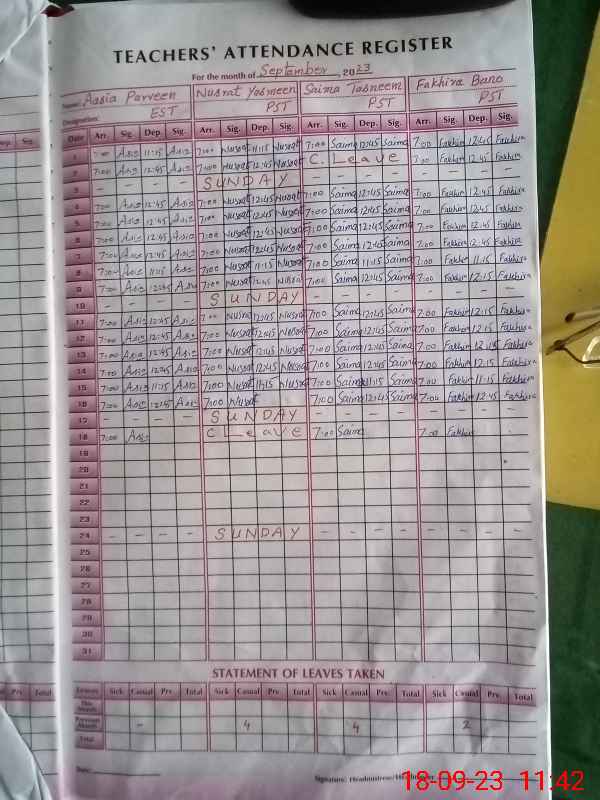 TEACHERS' ATTENDANCE REGISTER
For the month of September, 2023
Name: Aasia Parveen Nusrat Yasmeen Saima Tasneem Fakhira Bano
Designation: EST PST PST PST
Date Arr. Sig. Dep. Sig. Arr. Sig. Dep. Sig. Arr. Sig. Dep. Sig. Arr. Sig. Dep. Sig.
1 7:00 Asia 11:15 Asia 7:00 Nusrat 11:15 Nusrat 7:00 Saima 12:45 Saima 7:00 Fakhir 12:45 Fakhira
2 7:00 Asia 12:45 Asia 7:00 Nusrat 12:45 Nusrat C. Leave 7:00 Fakhir 12:45 Fakhira
3 - - - - SUNDAY - - - - - - - -
4 7:00 Asia 12:45 Asia 7:00 Nusrat 12:45 Nusrat 7:00 Saima 12:45 Saima 7:00 Fakhir 12:45 Fakhira
5 7:00 Asia 12:45 Asia 7:00 Nusrat 12:45 Nusrat 7:00 Saima 12:45 Saima 7:00 Fakhir 12:45 Fakhira
6 7:00 Asia 12:45 Asia 7:00 Nusrat 12:45 Nusrat 7:00 Saima 12:45 Saima 7:00 Fakhir 12:45 Fakhira
7 7:00 Asia 12:45 Asia 7:00 Nusrat 12:45 Nusrat 7:00 Saima 12:45 Saima 7:00 Fakhir 12:45 Fakhira
8 7:00 Asia 11:15 Asia 7:00 Nusrat 11:15 Nusrat 7:00 Saima 11:15 Saima 7:00 Fakhir 11:15 Fakhira
9 7:00 Asia 12:45 Asia 7:00 Nusrat 12:45 Nusrat 7:00 Saima 12:45 Saima 7:00 Fakhir 12:15 Fakhira
10 - - - - SUNDAY - - - - - - - -
11 7:00 Asia 12:45 Asia 7:00 Nusrat 12:45 Nusrat 7:00 Saima 12:45 Saima 7:00 Fakhir 12:15 Fakhira
12 7:00 Asia 12:45 Asia 7:00 Nusrat 12:45 Nusrat 7:00 Saima 12:45 Saima 7:00 Fakhir 12:15 Fakhira
13 7:00 Asia 12:45 Asia 7:00 Nusrat 12:45 Nusrat 7:00 Saima 12:45 Saima 7:00 Fakhir 12:15 Fakhira
14 7:00 Asia 12:45 Asia 7:00 Nusrat 12:45 Nusrat 7:00 Saima 12:45 Saima 7:00 Fakhir 12:15 Fakhira
15 7:00 Asia 11:15 Asia 7:00 Nusrat 11:15 Nusrat 7:00 Saima 11:15 Saima 7:00 Fakhir 11:15 Fakhira
16 7:00 Asia 12:45 Asia 7:00 Nusrat 7:00 Saima 12:45 Saima 7:00 Fakhir 12:45 Fakhira
17 - - - - SUNDAY - - - - - - - -
18 7:00 Asia C Leave 7:00 Saima 7:00 Fakhir
19
20
21
22
23
24 - - - - SUNDAY - - - - - - - -
25
26
27
28
29
30
31
STATEMENT OF LEAVES TAKEN
Leaves Sick Casual Prv. Total Sick Casual Prv. Total Sick Casual Prv. Total Sick Casual Prv. Total
This Month
Previous Month - 4 4 2
Total
Date:
Signature: Headmistress/Headmaster
18-09-23 11:42